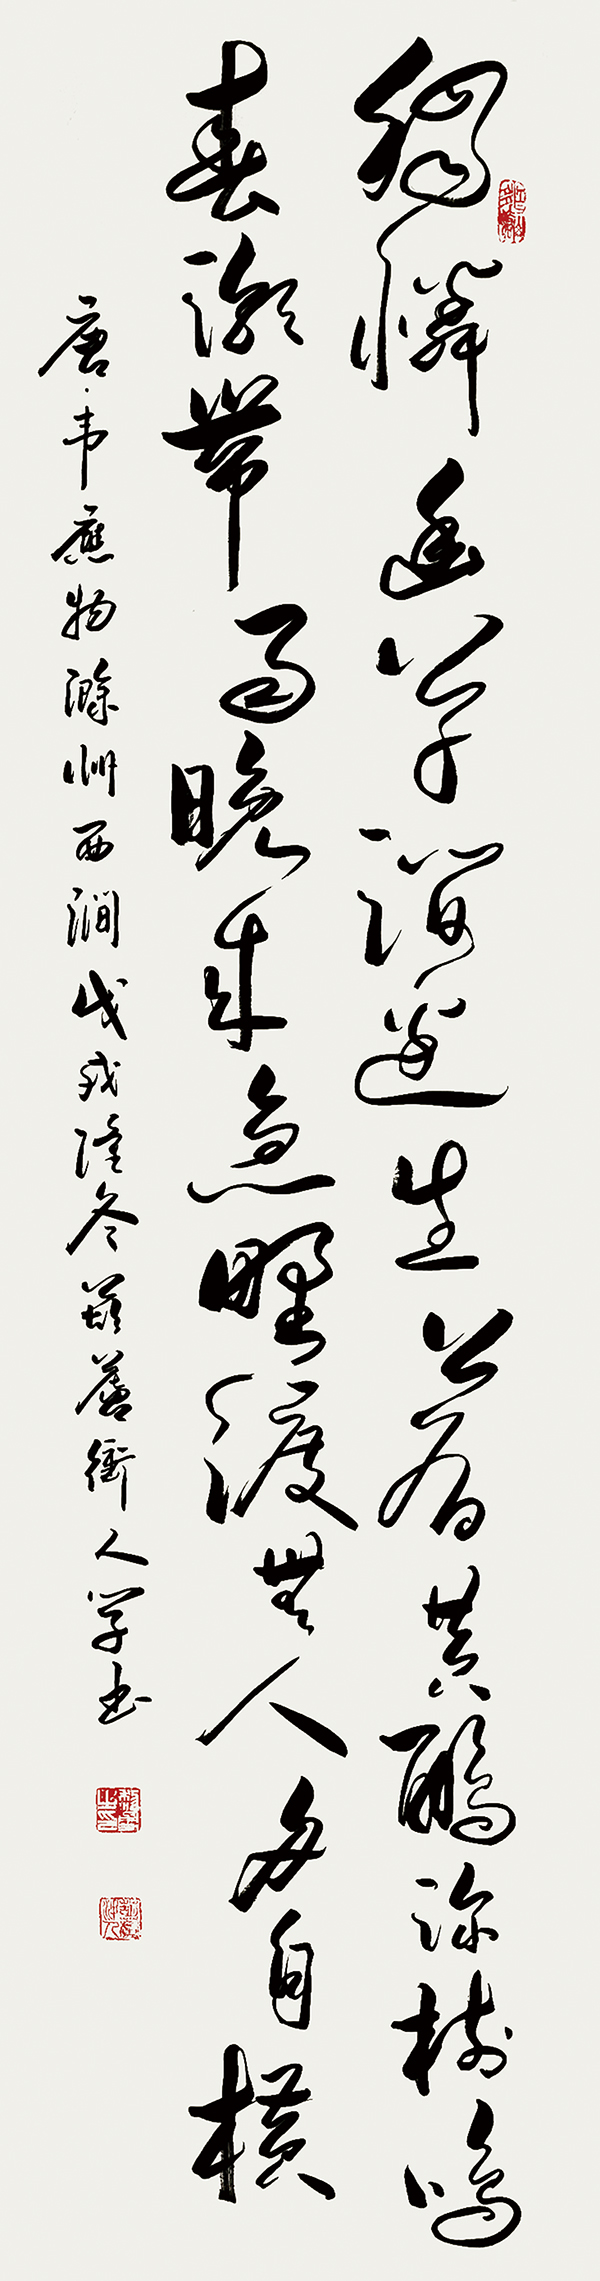 獨憐幽草澗邊生上有黃鸝深樹鳴
春潮帶雨晚來急野渡無人舟自橫
唐韋應物滁州西澗戊戌隆冬善衡人學書